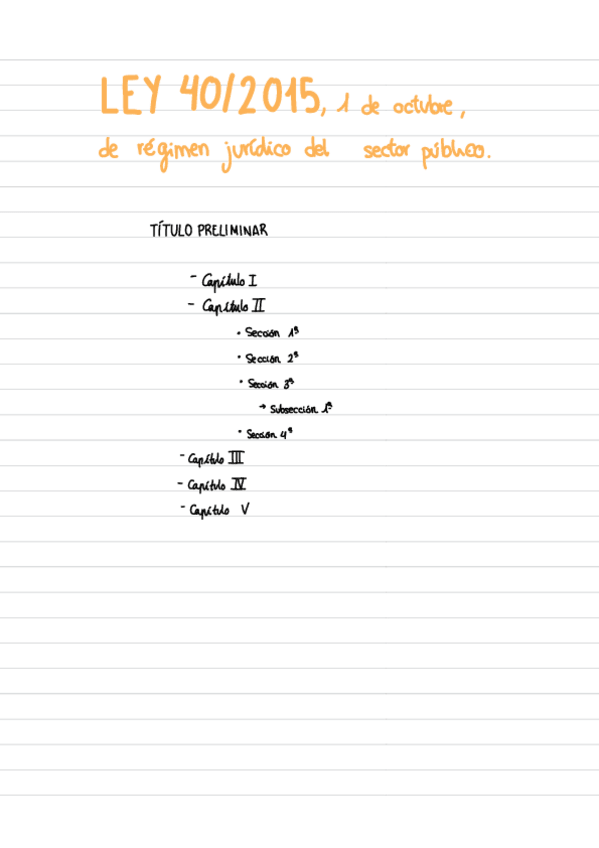 LEY 40/2015, 1 de octubre,
de régimen jurídico del sector público.
TÍTULO PRELIMINAR
- Capítulo I
- Capítulo II
• Sección 1ª
• Sección 2ª
• Sección 3ª
→ Subsección 1ª
• Sección 4ª
- Capítulo III
- Capítulo IV
- Capítulo V